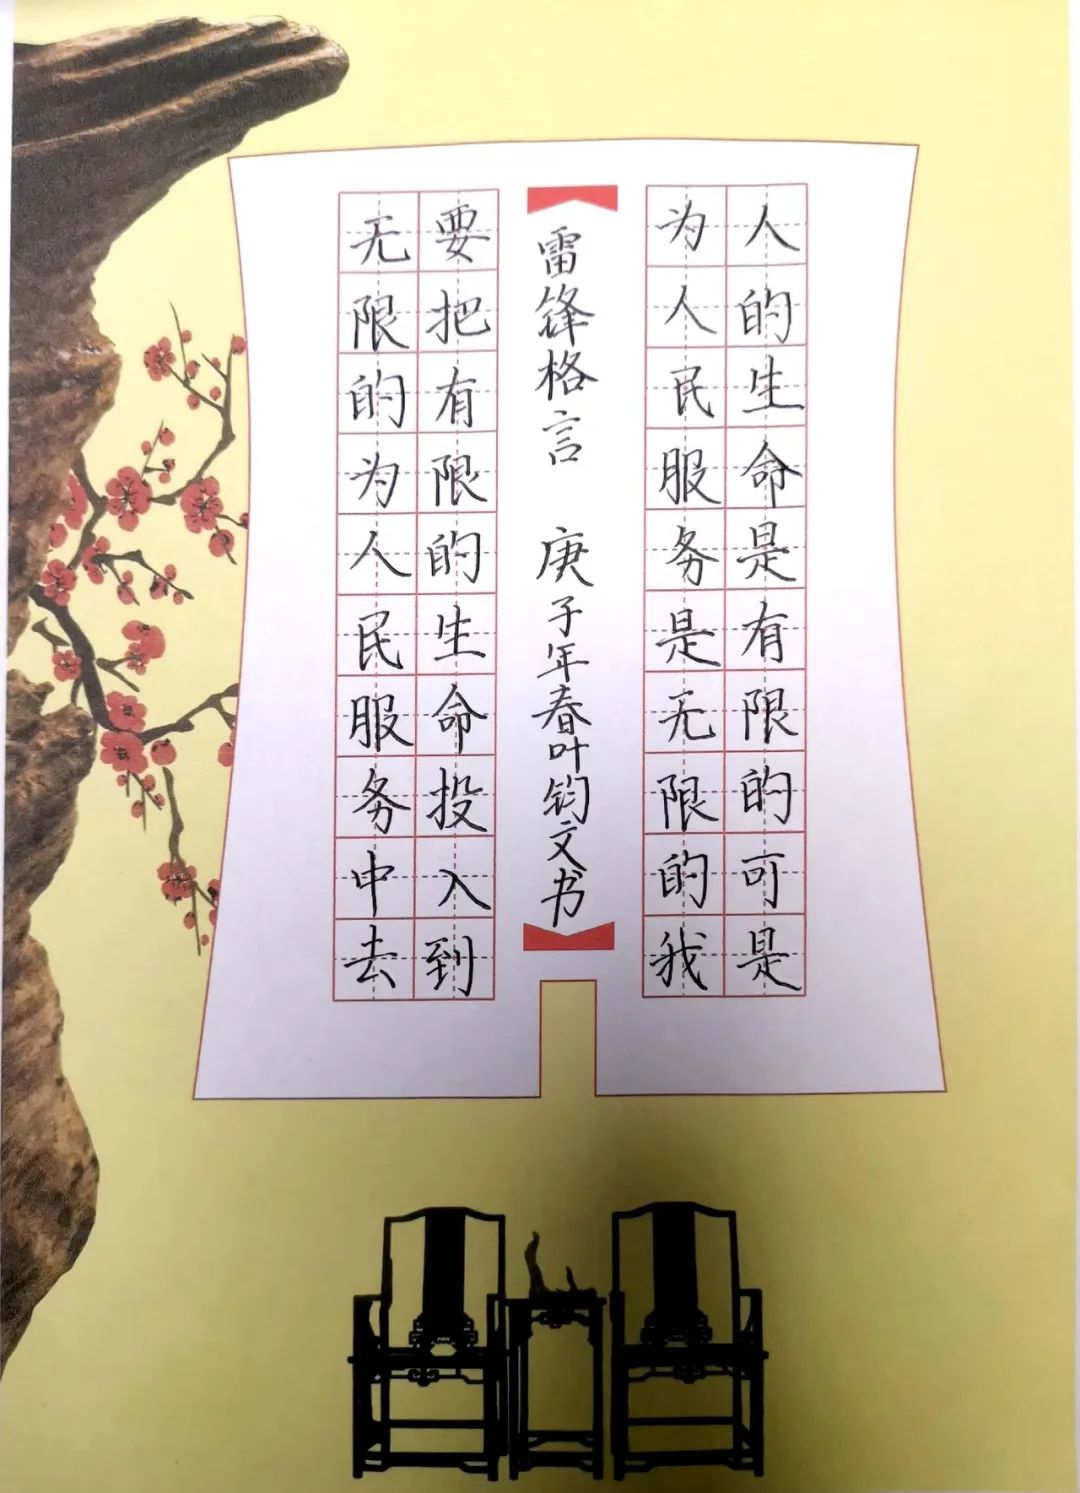 人的生命是有限的可是
为人民服务是无限的我
雷锋格言 庚子年春叶钧文书
要把有限的生命投入到
无限的为人民服务中去